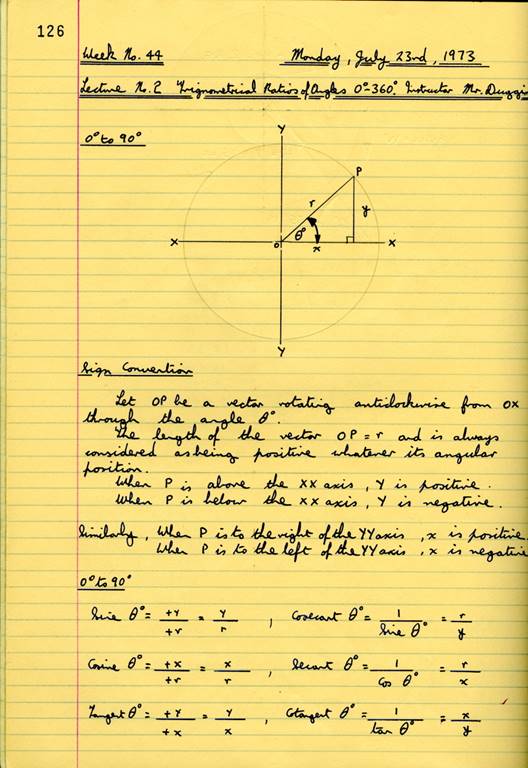 126
Week No. 44 Monday, July 23rd, 1973
Lecture No. 2 Trignometrical Ratios of Angles 0°-360°. Instructor Mr.
0° to 90°
Y
P
r
y
X θ° X
O x
Y
Sign Convention
Let OP be a vector rotating anticlockwise from OX
through the angle θ°.
The length of the vector OP = r and is always
considered as being positive whatever its angular
position.
When P is above the XX axis, Y is positive.
When P is below the XX axis, Y is negative.
Similarly, When P is to the right of the YY axis, x is positive.
When P is to the left of the YY axis, x is negative
0° to 90°
Sine θ° = +Y/+r = Y/r , Cosecant θ° = 1/Sine θ° = r/y
Cosine θ° = +x/+r = x/r , Secant θ° = 1/Cos θ° = r/x
Tangent θ° = +Y/+x = Y/x , Cotangent θ° = 1/tan θ° = x/y